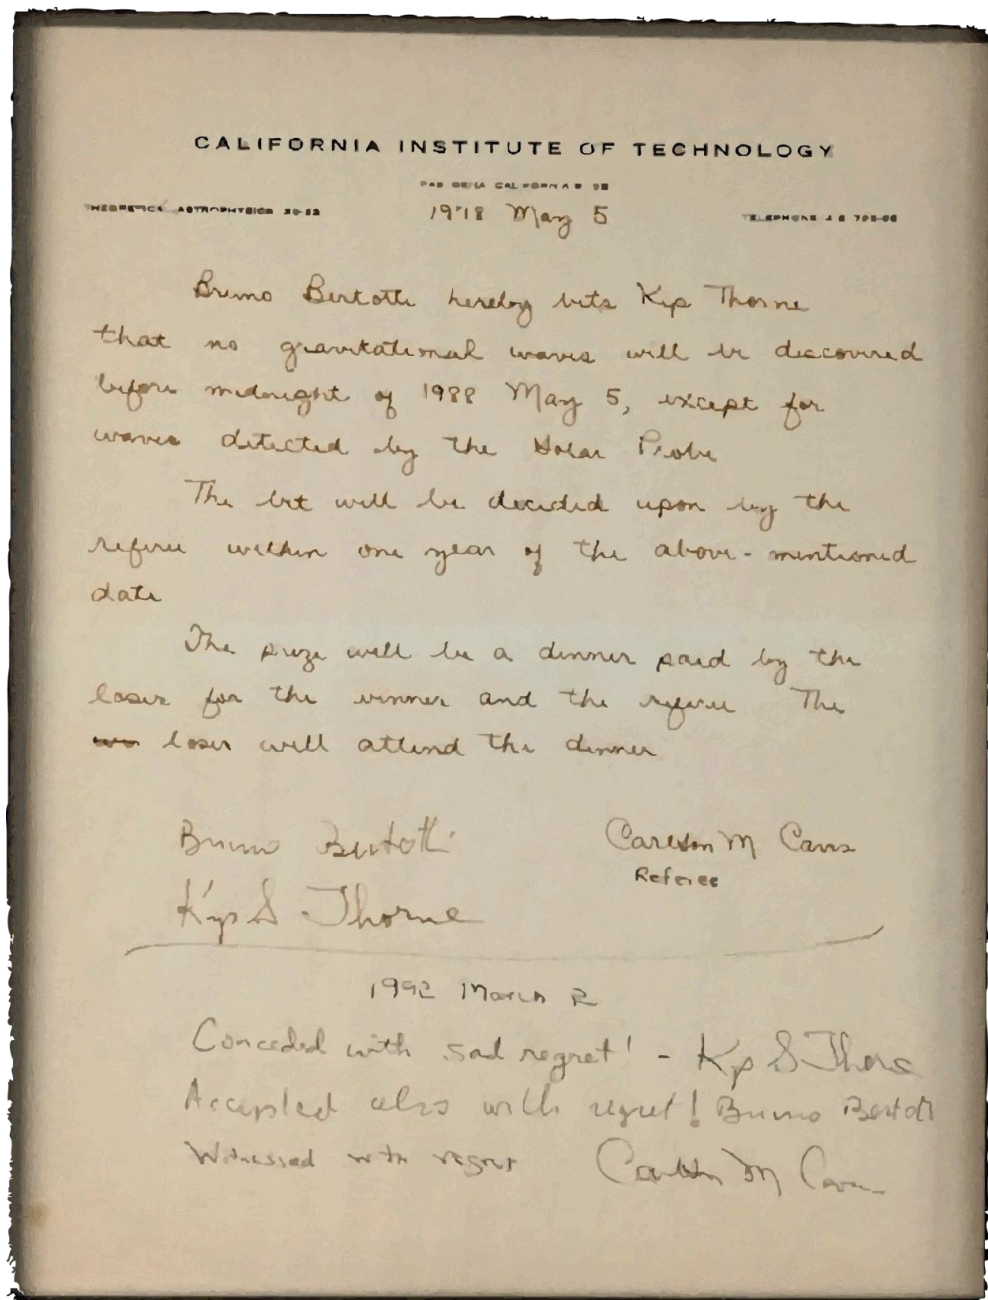 CALIFORNIA INSTITUTE OF TECHNOLOGY
1978 May 5
Bruno Bertotti hereby bets Kip Thorne
that no gravitational waves will be discovered
before midnight of 1988 May 5, except for
waves detected by the Solar Probe
The bet will be decided upon by the
referee within one year of the above-mentioned
date
The prize will be a dinner paid by the
loser for the winner and the referee The
loser will attend the dinner
Bruno Bertotti
Carlton M Caves
Referee
Kip S Thorne
1992 March
Conceded with sad regret! - Kip S Thorne
Accepted also with regret! Bruno Bertotti
Witnessed with regret Carlton M Caves